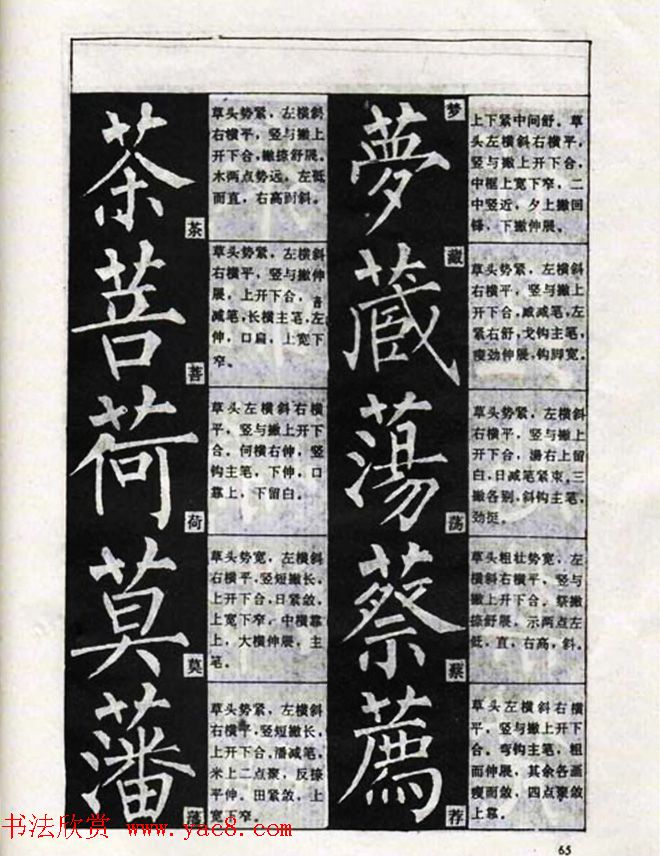 茶
茶
草头势紧，左横斜
右横平，竖与撇上
开下合，撇捺舒展。
木两点势远，左低
而直，右高而斜。
菩
菩
草头势紧，左横斜
右横平，竖与撇伸
展，上开下合，音
减笔，长横主笔，左
伸，口扁，上宽下
窄。
荷
荷
草头左横斜右横
平，竖与撇上开下
合。何横右伸，竖
钩主笔，下伸，口
靠上，下留白。
莫
莫
草头势宽，左横斜
右横平，竖短撇长，
上开下合，日紧敛，
上宽下窄，中横靠
上，大横伸展，主
笔。
藩
藩
草头势紧，左横斜
右横平，竖短撇长，
上开下合，潘减笔，
米上二点聚，反捺
平伸。田紧敛，上
宽下窄。
夢
梦
上下紧中间舒。草
头左横斜右横平，
竖与撇上开下合，
中框上宽下窄，二
中竖近，夕上撇回
锋，下撇伸展。
蔵
藏
草头势紧，左横斜
右横平，竖与撇上
开下合，臧减笔，左
紧右舒，戈钩主笔，
瘦劲伸展，钩脚宽。
蕩
荡
草头势紧，左横斜
右横平，竖与撇上
开下合，湯右上留
白，日减笔紧束，三
撇各别，斜钩主笔，
劲挺。
蔡
蔡
草头粗壮势宽，左
横斜右横平，竖与
撇上开下合。祭撇
捺舒展，示两点左
低，直，右高，斜。
薦
荐
草头左横斜右横
平，竖与撇上开下
合。弯钩主笔，粗
而伸展，其余各画
瘦而敛，四点聚敛
上靠。
书法欣赏 www.yac8.com
65